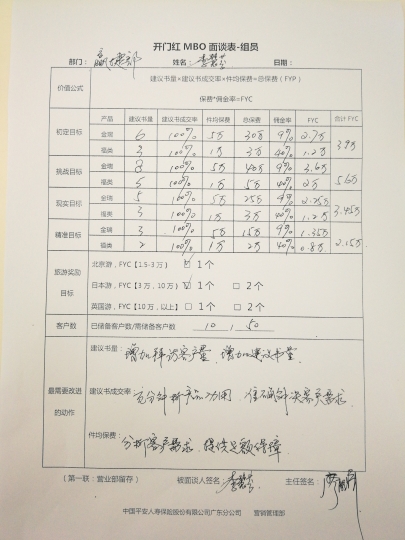 开门红 MBO 面谈表-组员
部门： 赢建部 姓名： 日期：
价值公式 建议书量*建议书成交率*件均保费=总保费（FYP）
保费*佣金率=FYC
产品 建议书量 建议书成交率 件均保费 总保费 佣金率 FYC 合计 FYC
初定目标 金瑞 6 100% 5万 30万 9% 2.7万 3.9万
福类 3 100% 1万 3万 40% 1.2万
挑战目标 金瑞 8 100% 5万 40万 9% 3.6万 5.6万
福类 5 100% 1万 5万 40% 2万
现实目标 金瑞 5 100% 5万 25万 9% 2.25万 3.45万
福类 3 100% 1万 3万 40% 1.2万
精准目标 金瑞 3 100% 5万 15万 9% 1.35万 2.15万
福类 2 100% 1万 2万 40% 0.8万
旅游奖励目标 北京游，FYC【1.5-3万】 ☑ 1个
日本游，FYC【3万，10万】 ☑ 1个 □ 2个
英国游，FYC【10万，以上】 □ 1个 □ 2个
客户数 已储备客户数/需储备客户数 10 / 50
最需要改进的动作
建议书量： 增加拜访客户量，增加建议书量
建议书成交率： 充分分析产品功用 准确解决客户需求
件均保费： 分析客户需求，提供足额保障
（第一联：营业部留存） 被面谈人签名： 主任签名：
中国平安人寿保险股份有限公司广东分公司 营销管理部